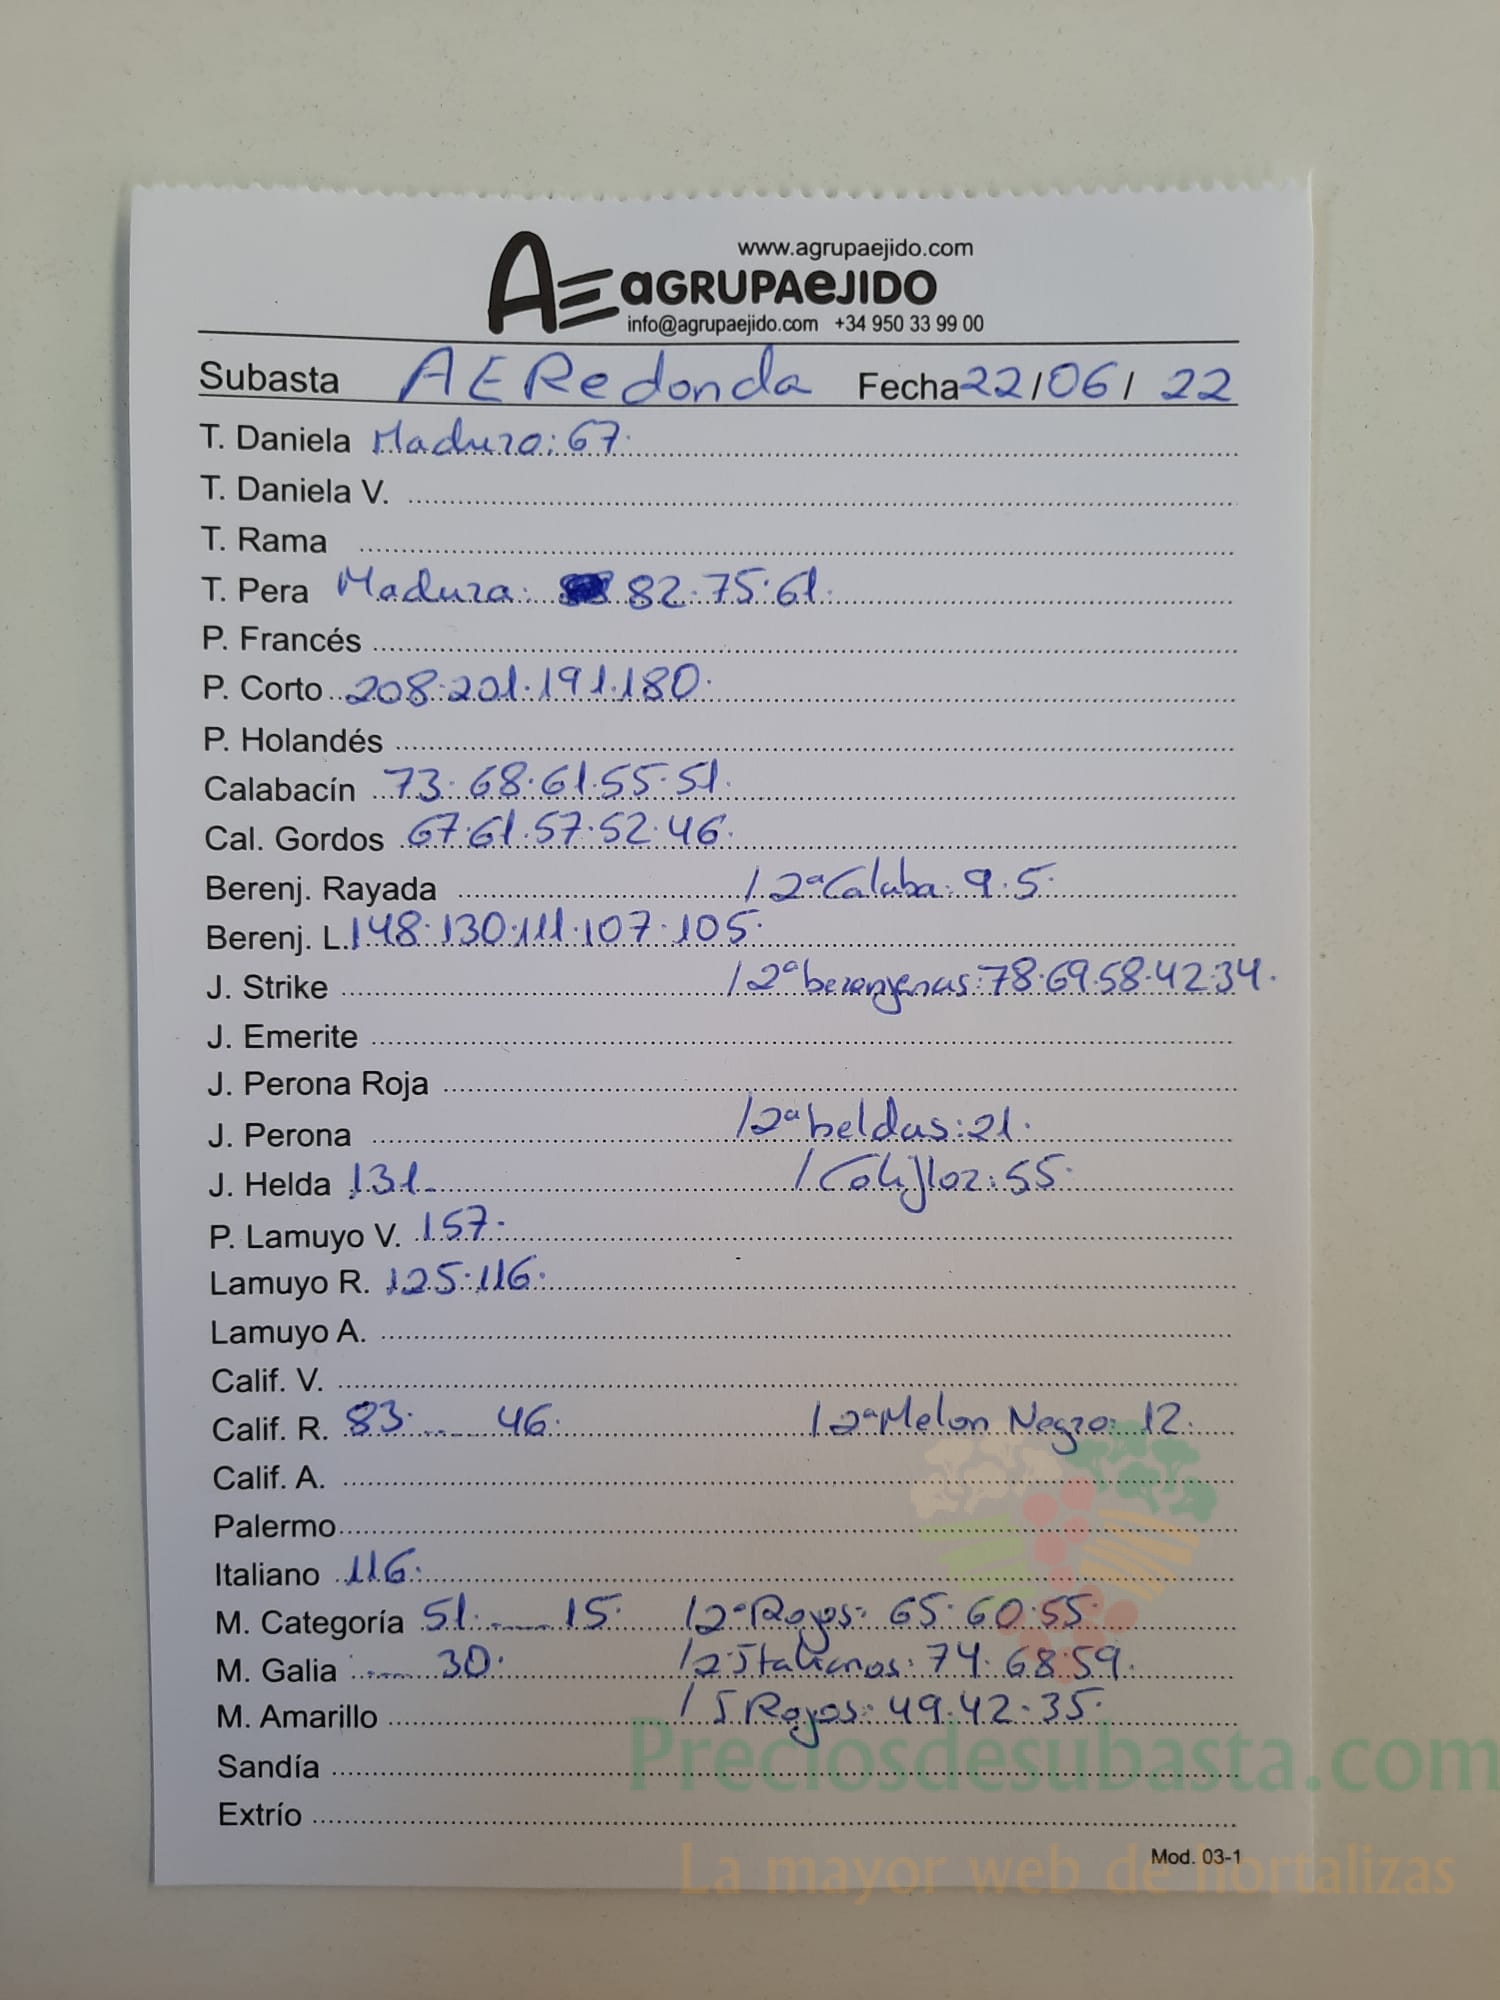 www.agrupaejido.com
AE aGRUPAeJIDO
info@agrupaejido.com +34 950 33 99 00
Subasta AE Redonda Fecha 22/06/22
T. Daniela Maduro: 67.
T. Daniela V.
T. Rama
T. Pera Madura: 82.75.61.
P. Francés
P. Corto 208.201.191.180.
P. Holandés
Calabacín 73.68.61.55.51.
Cal. Gordos 67.61.57.52.46.
Berenj. Rayada /2ª Calaba: 9.5.
Berenj. L. 148.130.111.107.105.
J. Strike /2ª berenjenas: 78.69.58.42.34.
J. Emerite
J. Perona Roja
J. Perona /2ª heldas: 21.
J. Helda 131 /Coliflor: 55.
P. Lamuyo V. 157.
Lamuyo R. 125.116.
Lamuyo A.
Calif. V.
Calif. R. 83. ---- 46. /2ª Melon Negro: 12.
Calif. A.
Palermo
Italiano 116.
M. Categoría 51. ---- 15. /2ª Rojos: 65.60.55.
M. Galia ---- 30. /2 Italianos: 74.68.59.
M. Amarillo /5 Rojos: 49.42.35.
Sandía
Preciosdesubasta.com
Extrío
Mod. 03-1
La mayor web de hortalizas